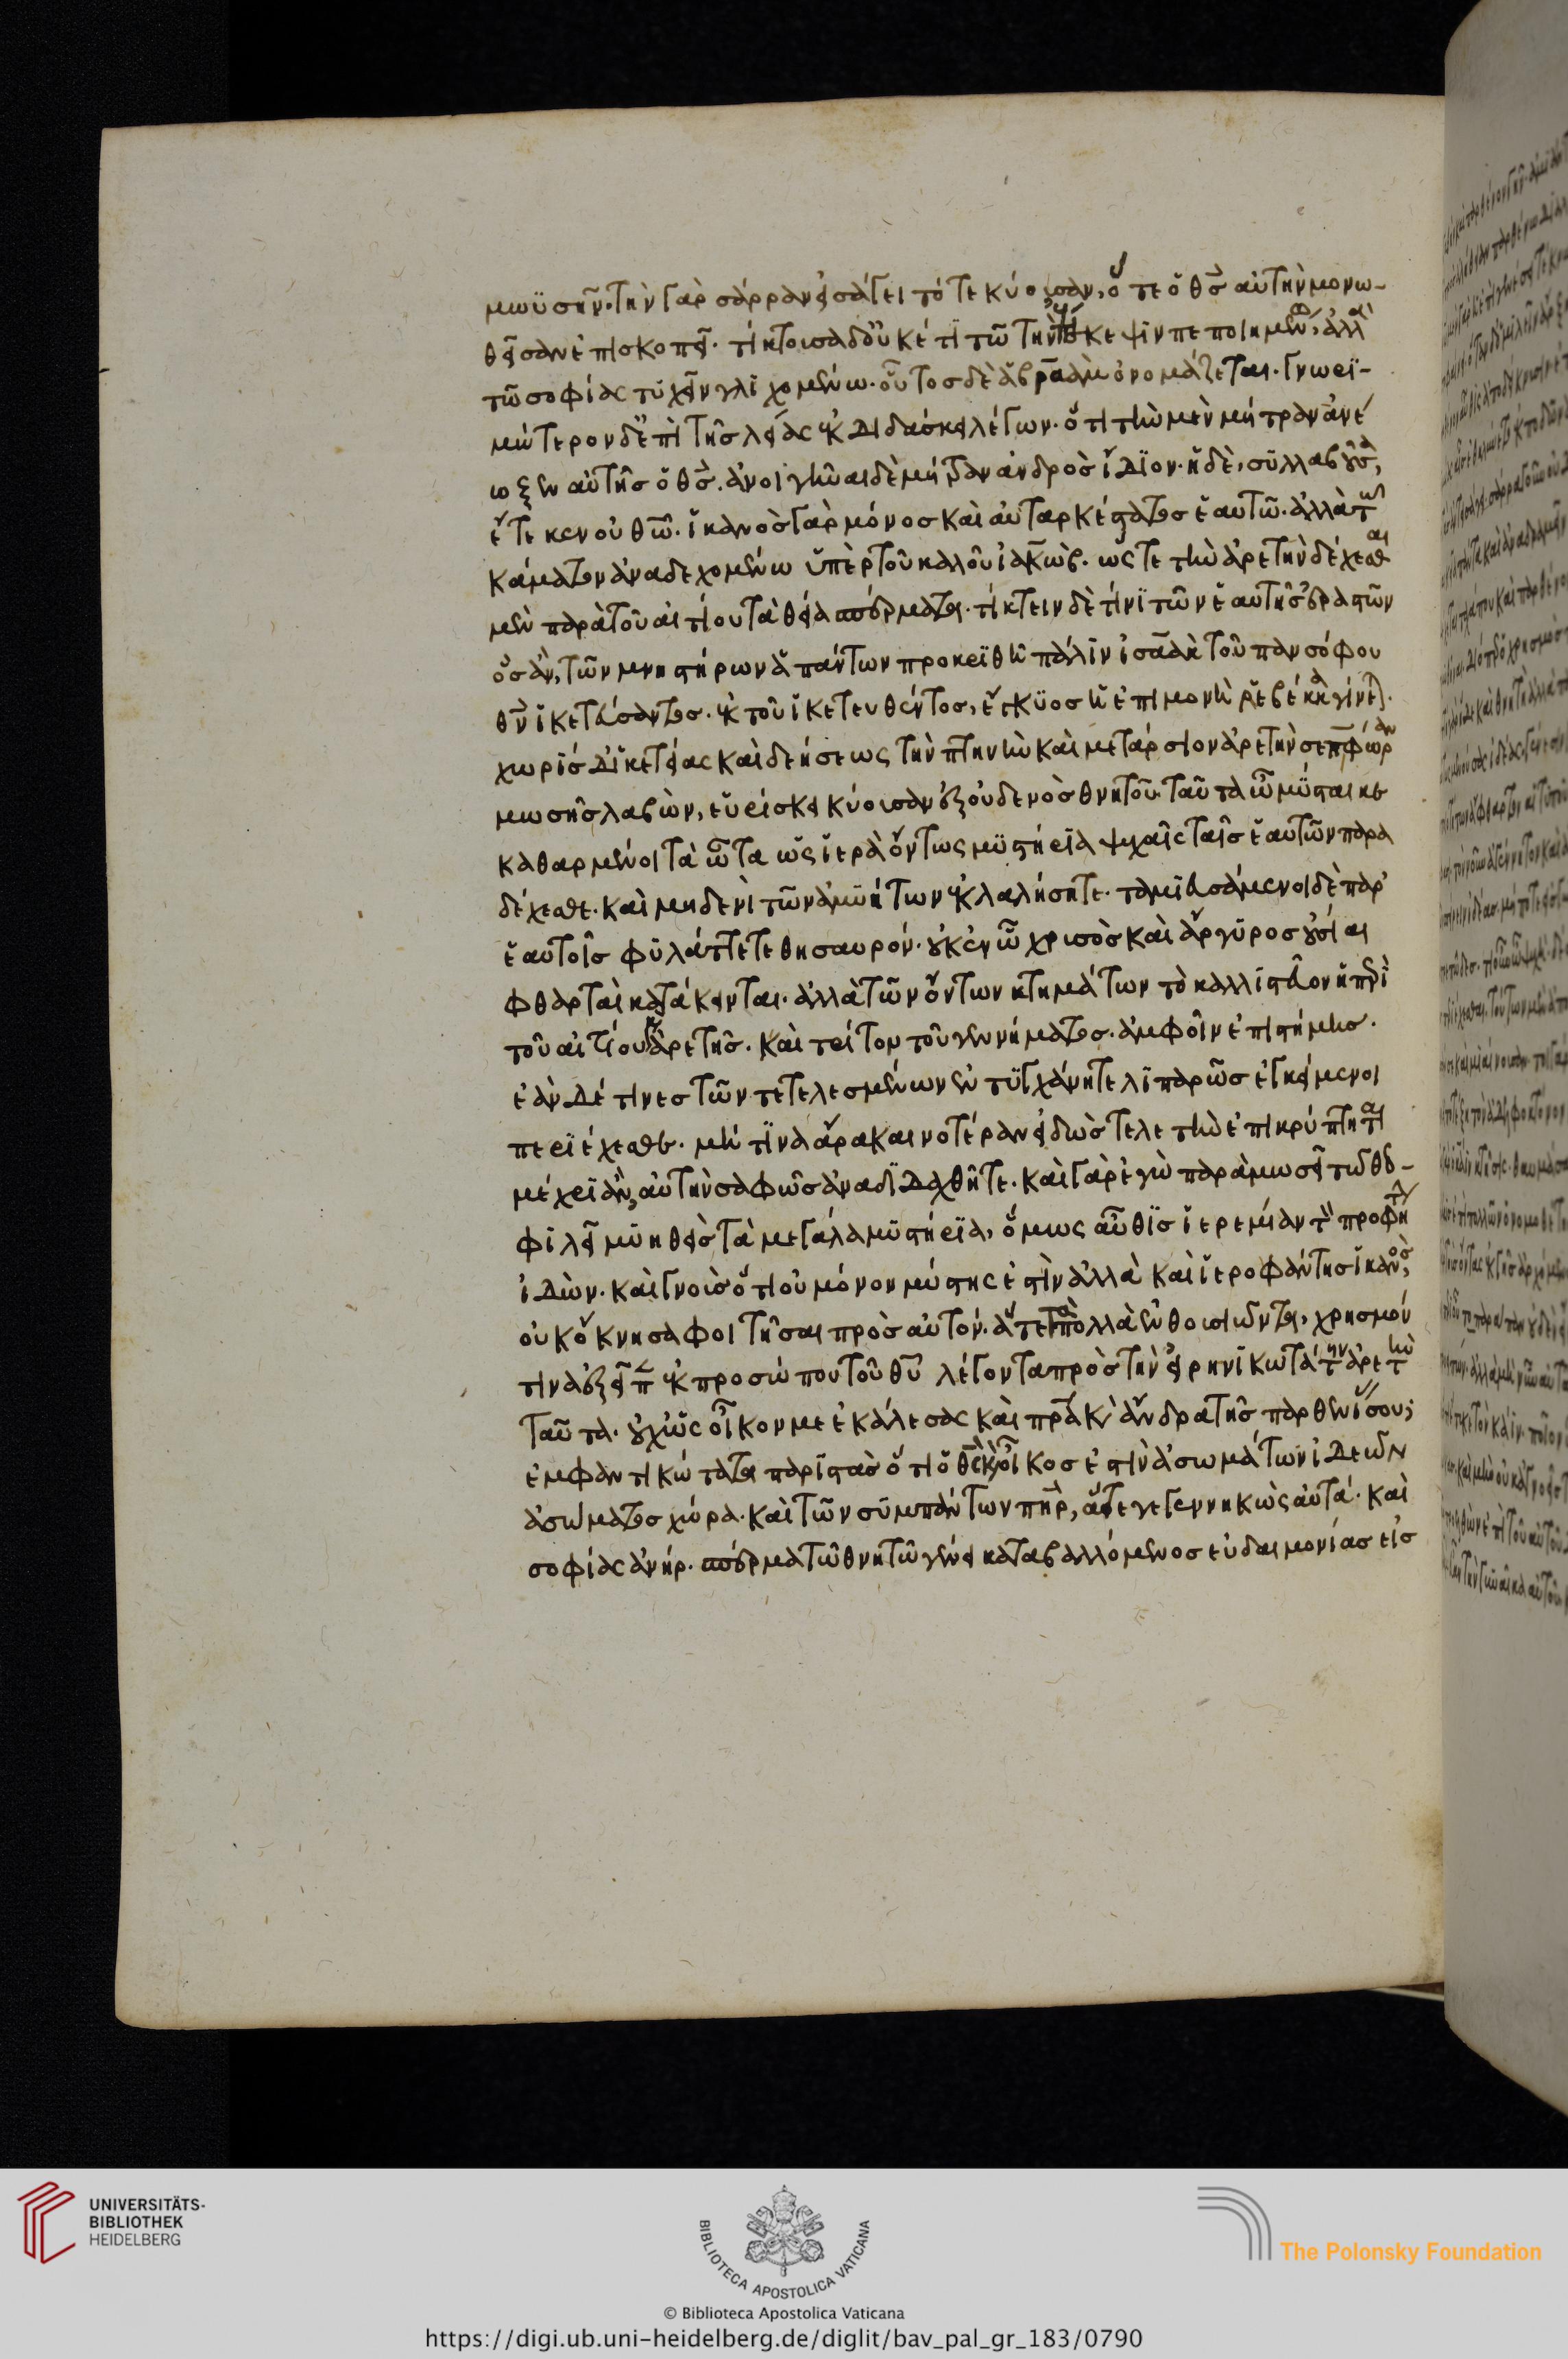 μωϋσῆν· τὴν γὰρ σάρραν εἰσάγει τότε κύουσαν, ὅτε ὁ θ̅ς̅ αὐτὴν μονω-
θεῖσαν ἐπισκοπεῖ· τίκτουσα δ' οὐκέτι τῶ τὴν ἐπίσκεψιν πεποιημένω, ἀλλὰ
τῶ σοφίας τυχεῖν γλιχομένω· οὗτος δὲ ἀβραὰμ ὀνομάζεται· γνωρι-
μώτερον δ' ἐπὶ τῆς λείας ἐκδιδάσκει λέγων· ὅτι τὴν μὲν μήτραν ἀνέ
ωξεν αὐτῆς ὁ θ̅ς̅. ἀνοιγνῦναι δὲ μήτραν ἀνδρὸς ἴδιον· ἡ δὲ, συλλαβοῦσα,
ἔτεκεν οὐ θ̅ω̅· ἱκανὸς γὰρ μόνος καὶ αὐταρκέστατος ἑαυτῶ· ἀλλὰ τῶ
κάματον ἀναδεχομένω ὑπὲρ τοῦ καλοῦ ἰακώβ· ὥστε τὴν ἀρετὴν δέχεσθαι
μὲν παρὰ τοῦ αἰτίου τὰ θεῖα σπέρματα· τίκτειν δὲ τινὶ τῶν ἑαυτῆς ἐραστῶν
ὃς ἂν, τῶν μνηστήρων ἁπάντων προκριθῆ πάλιν ἰσαὰκ τοῦ πανσόφου
θ̅ν̅ ἱκετεύσαντος· ἐκ τοῦ ἱκετευθέντος, ἔγκυος ἡ ἐπιμονὴ ῥεβέκκα γίνεται·
χωρὶς δ' ἱκετείας καὶ δεήσεως τὴν πτηνὴν καὶ μετάρσιον ἀρετὴν σεπφώραν
μωσῆς λαβὼν, εὑρίσκει κύουσαν ἐξ οὐδενὸς θνητοῦ· ταῦτα ὦ μύσται κε
καθαρμένοι τὰ ὦτα ὡς ἱερὰ ὄντως μυστήρια ψυχαῖς ταῖς ἑαυτῶν παρα
δέχεσθε· καὶ μηδενὶ τῶν ἀμυήτων ἐκλαλήσητε· ταμιευσάμενοι δὲ παρ'
ἑαυτοῖς φυλάττετε θησαυρόν· οὐκ ἐν ὧ χρυσὸς καὶ ἄργυρος οὐσίαι
φθαρταὶ κατάκεινται· ἀλλὰ τῶν ὄντων κτημάτων τὸ κάλλιστον ἡ περὶ
τοῦ αἰτίου καὶ ἀρετῆς· καὶ τρίτου τοῦ γεννήματος· ἀμφοῖν ἐπιστήμης·
ἐὰν δέ τινες τῶν τετελεσμένων ἐντυγχάνητε λιπαρῶς ἐγκείμενοι
περιέχεσθε· μή τινα ἄρα καινοτέραν εἰδὼς τελετὴν ἐπικρύπτηται
μέχρις ἂν, αὐτὴν σαφῶς ἀναδιδαχθῆτε· καὶ γὰρ ἐγὼ παρὰ μωσεῖ τῶ θεο-
φιλεῖ μυηθεὶς τὰ μεγάλα μυστήρια, ὅμως αὖθις ἱερεμίαν τὸν προφήτην
ἰδὼν· καὶ γνοὺς ὅτι οὐ μόνον μύστης ἐστὶν ἀλλὰ καὶ ἱεροφάντης ἱκανὸς,
οὐκ ὤκνησα φοιτῆσαι πρὸς αὐτόν· ἅτε τὰ πολλὰ ἐνθουσιῶντα, χρησμόν
τινα ἐξεῖπεν ἐκ προσώπου τοῦ θ̅υ̅ λέγοντα πρὸς τὴν εἰρηνικωτάτην ἀρετὴν
ταῦτα· οὐχ ὡς οἶκόν με ἐκάλεσας καὶ π̅ρ̅α̅ καὶ ἄνδρα τῆς παρθενίας σου;
ἐμφαντικώτατα παριστὰς ὅτι ὁ θ̅ς̅ καὶ οἶκος ἐστὶν ἀσωμάτων ἰδεῶν
ἀσώματος χώρα· καὶ τῶν συμπάντων π̅η̅ρ̅, ἅτε γεγεννηκὼς αὐτά· καὶ
σοφίας ἀνήρ· σπέρμα τῶ θνητῶ γένει καταβαλλόμενος εὐδαιμονίας εἰς
UNIVERSITÄTS-
BIBLIOTHEK
HEIDELBERG
BIBLIOTECA APOSTOLICA VATICANA
The Polonsky Foundation
© Biblioteca Apostolica Vaticana
https://digi.ub.uni-heidelberg.de/diglit/bav_pal_gr_183/0790